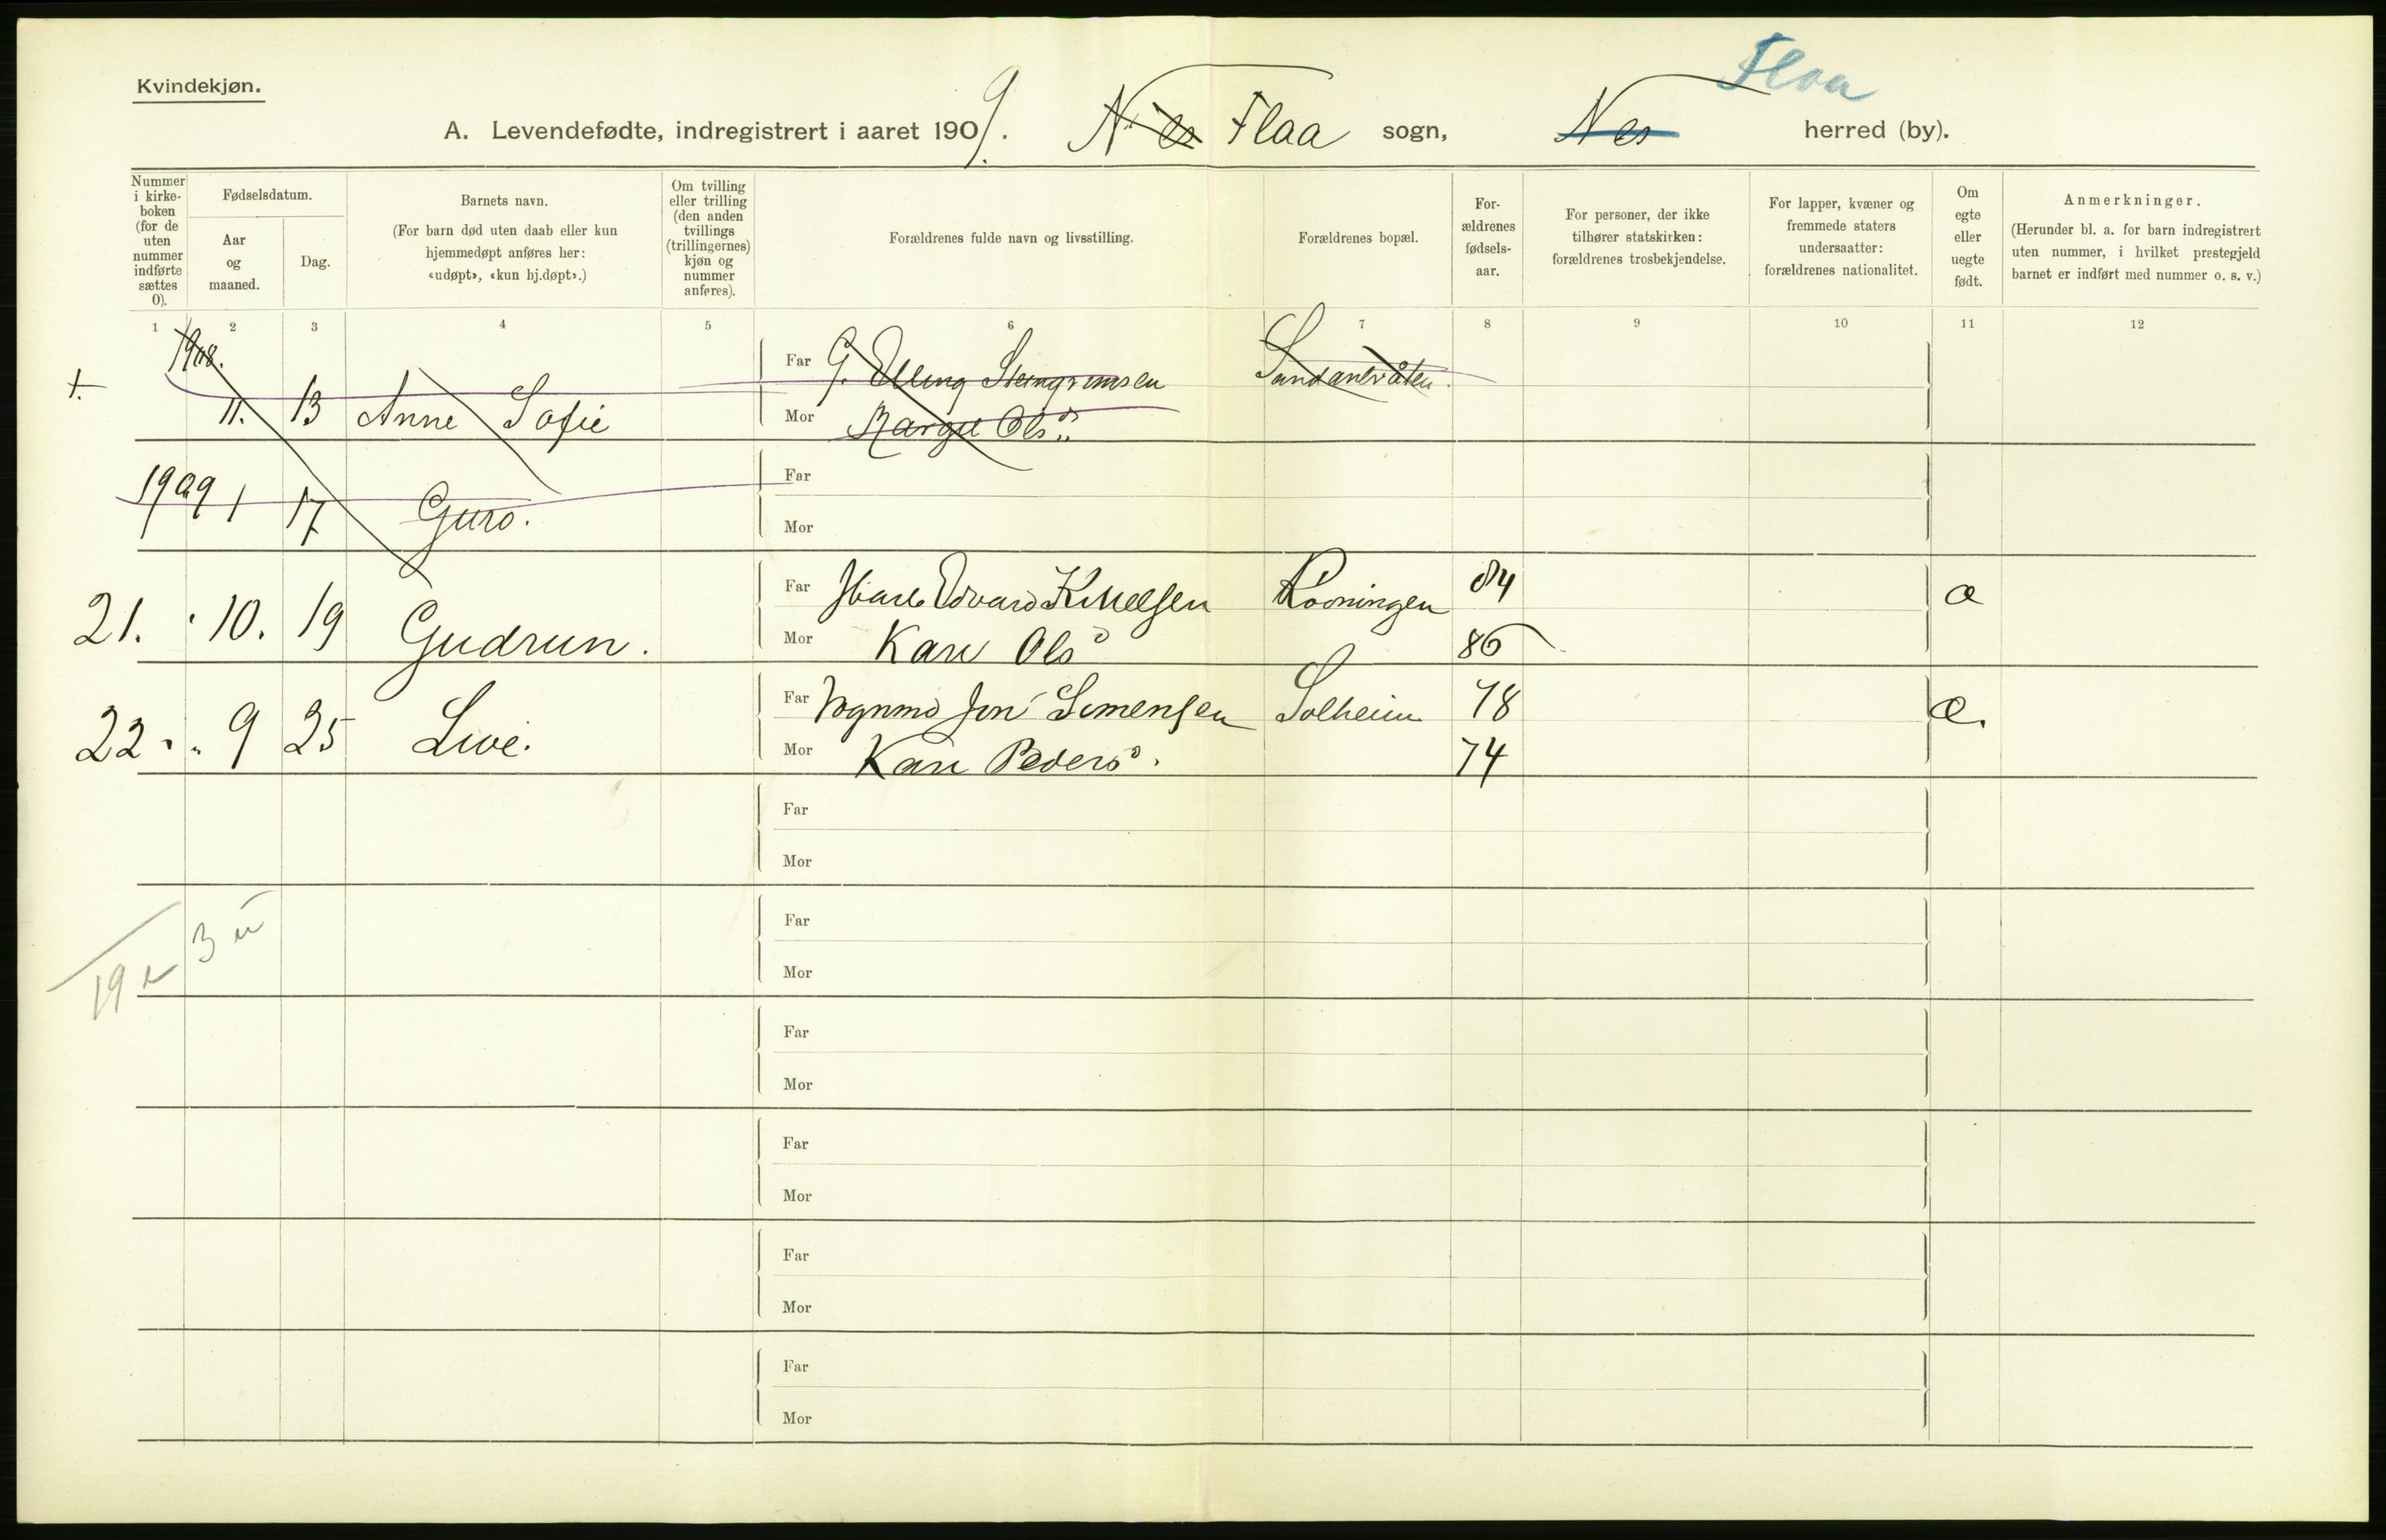 Kvindekjøn.
Flaa
A. Levendefødte, indregistrert i aaret 1909. Nes Flaa sogn, Nes herred (by).
Nummer i kirke-boken (for de uten nummer indførte sættes 0).
Fødselsdatum.
Aar og maaned.
Dag.
Barnets navn.
(For barn død uten daab eller kun hjemmedøpt anføres her: «udøpt», «kun hj.døpt».)
Om tvilling eller trilling (den anden tvillings (trillingernes) kjøn og nummer anføres).
Forældrenes fulde navn og livsstilling.
Forældrenes bopæl.
For-ældrenes fødsels-aar.
For personer, der ikke tilhører statskirken: forældrenes trosbekjendelse.
For lapper, kvæner og fremmede staters undersaatter: forældrenes nationalitet.
Om egte eller uegte født.
Anmerkninger.
(Herunder bl. a. for barn indregistrert uten nummer, i hvilket prestegjeld barnet er indført med nummer o. s. v.)
1 2 3 4 5 6 7 8 9 10 11 12
1908.
Far G. Elling Steingrimsen
11. 13 Anne Sofie
Mor Margit Ols
1909 1 17 Guro.
Far
Mor
21. 10. 19 Gudrun.
Far Edvard 84
Mor Kari Ols 86
22. 9 25 Live.
Far Jon Simensen Solheim 78
Mor Kari Peders. 74
Far
Mor
3 u
19
Far
Mor
Far
Mor
Far
Mor
Far
Mor
Far
Mor